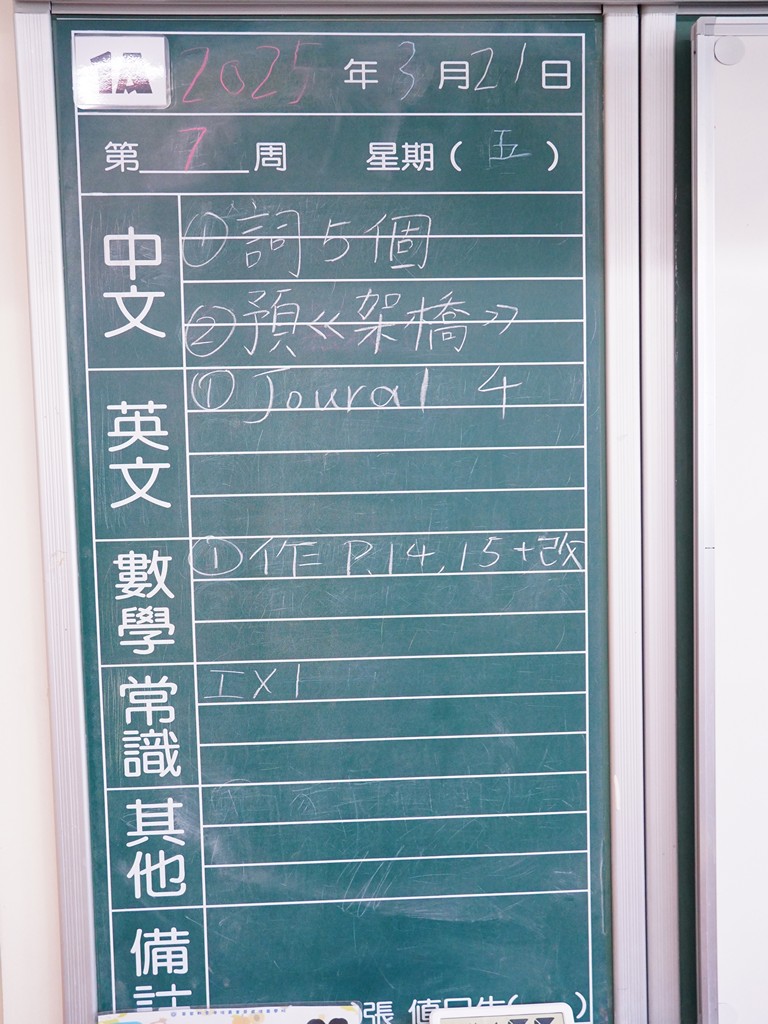 1A 2025 年 3 月 21 日
第 7 周 星期 ( 五 )
中文 ① 詞 5 個
② 預 《架橋》
英文 ① Joural 4
數學 ① 作 P.14, 15 + 改
常識 工 X 1
其他
備註
張 值日生( )